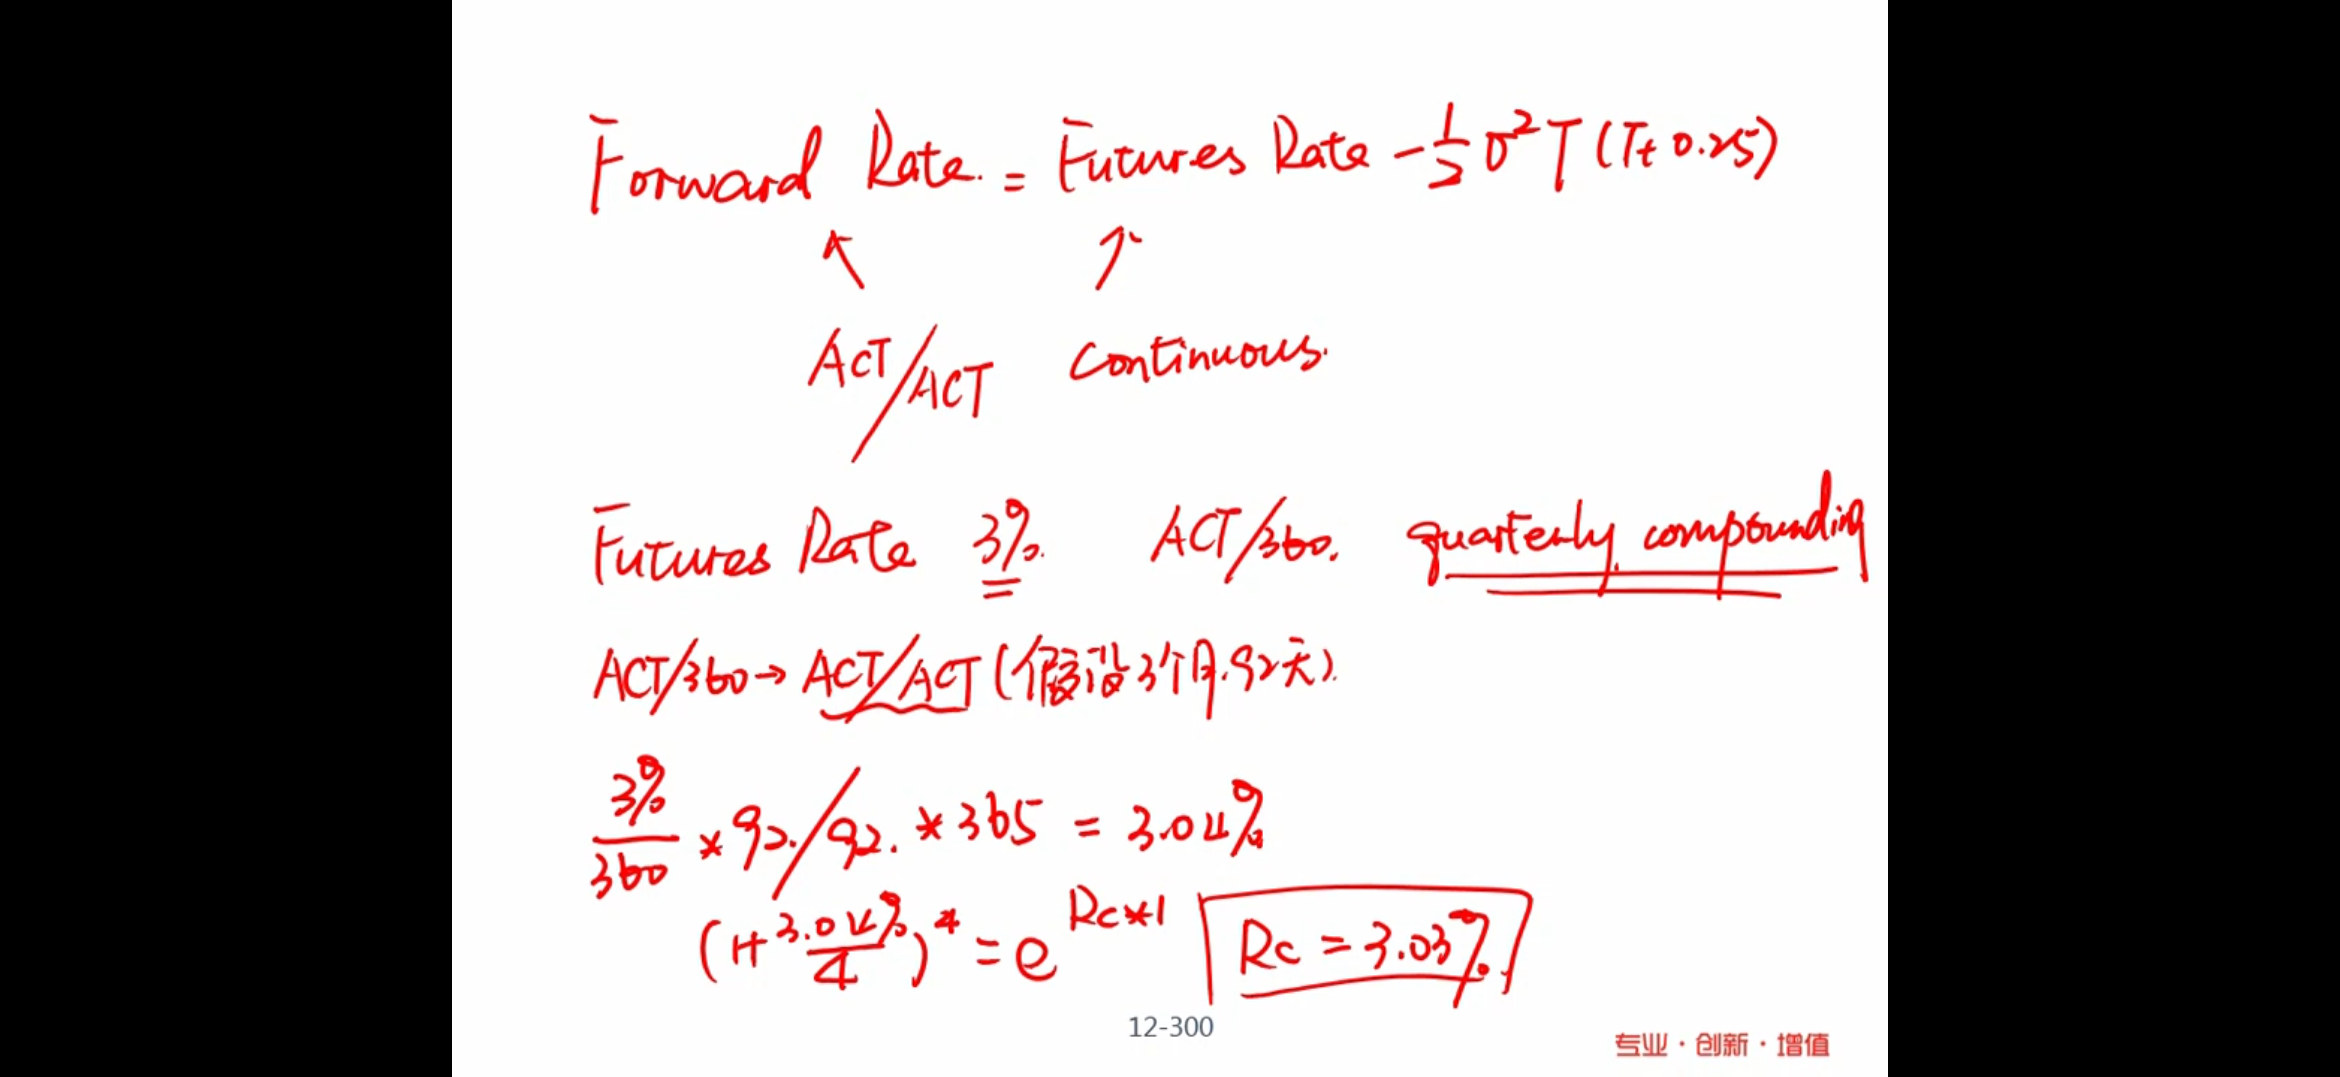 Forward Rate. = Futures Rate - 1/2 σ² T (T+0.25)
ACT/ACT continuous.
Futures Rate 3%. ACT/360. quarterly compounding
ACT/360→ACT/ACT (假设3个月.92天).
3%/360 * 92./92. * 365 = 3.04%
(1+3.04%/4)^4 = e^Rc*1 Rc = 3.03%.
12-300
专业·创新·增值